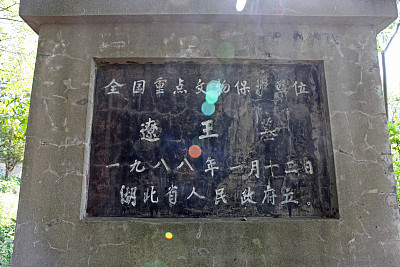 全国重点文物保护单位
遼王墓
一九八八年一月十三日
湖北省人民政府立。